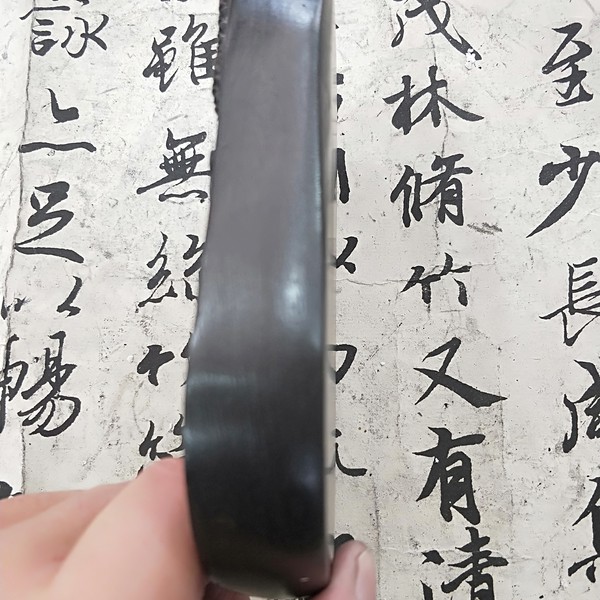 至少長咸集
茂林脩竹又有清
雖無絲竹管
詠亦足以暢